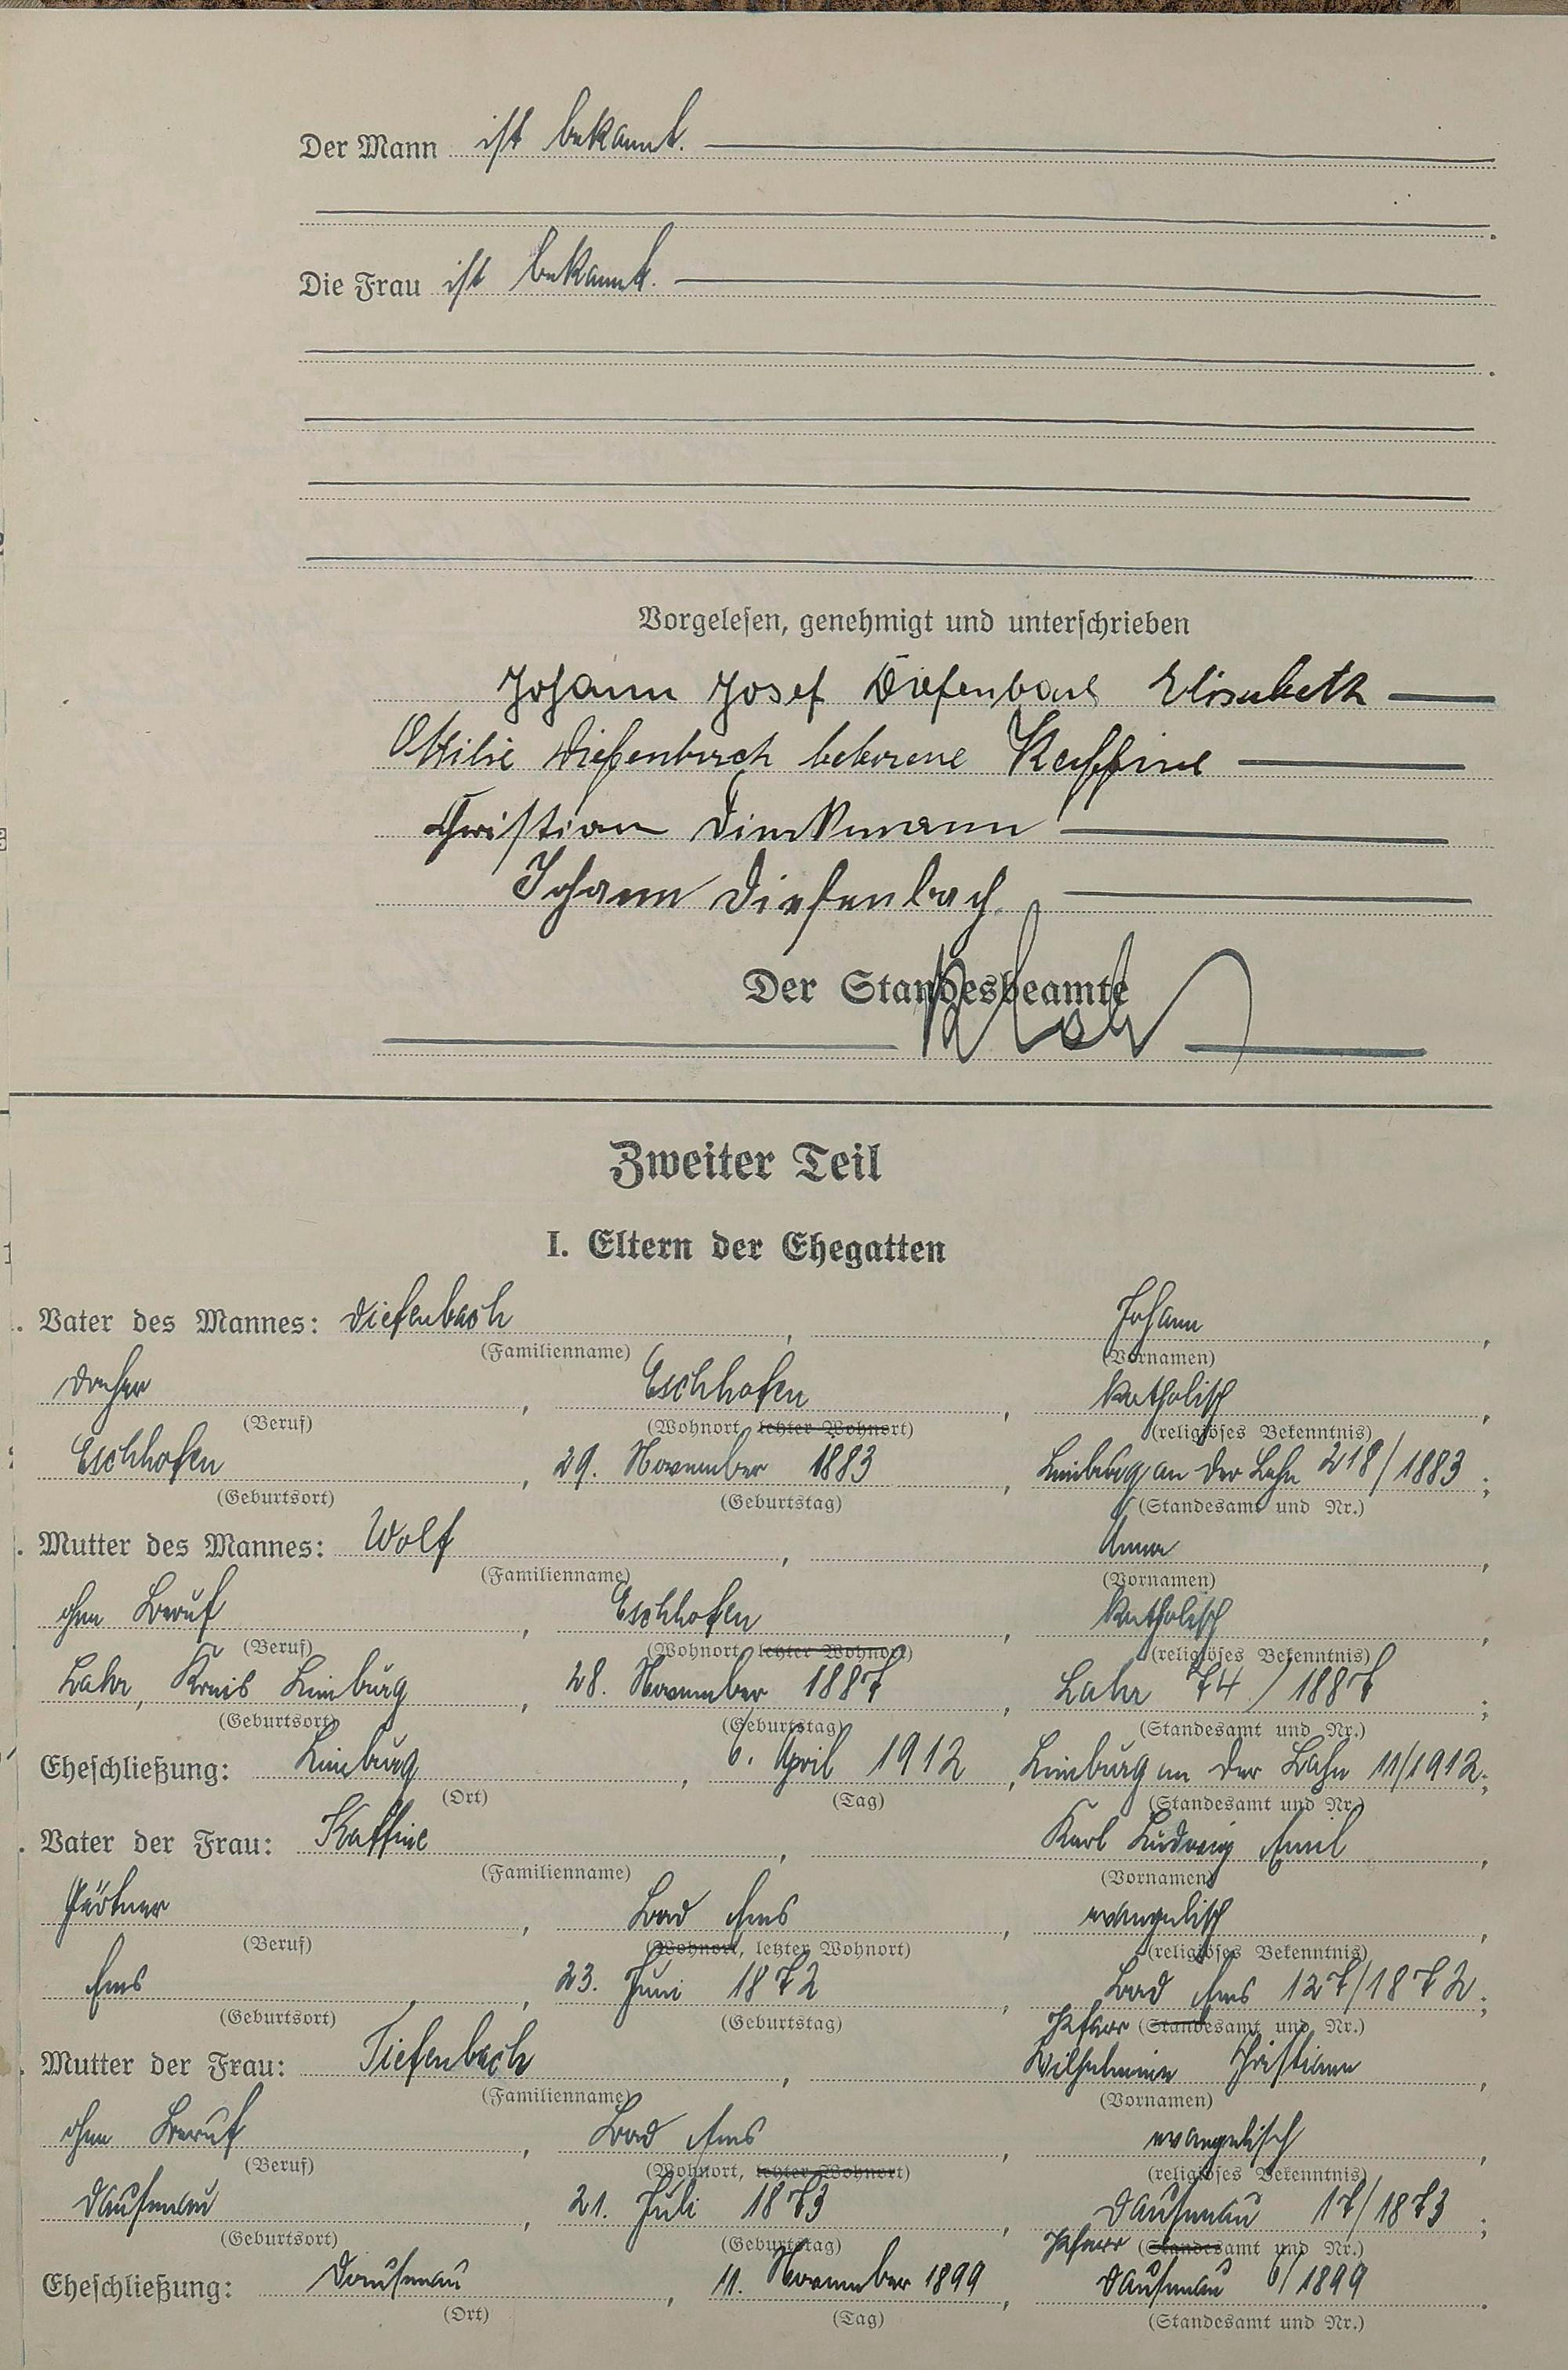 Der Mann ist bekannt.
Die Frau ist bekannt.
Vorgelesen, genehmigt und unterschrieben
Johann Josef Diefenbach Elisabeth
Ottilie Diefenbach geborene Kaffine
Christian Dinkmann
Johann Diefenbach
Der Standesbeamte
Zweiter Teil
I. Eltern der Ehegatten
Vater des Mannes: Diefenbach, Johann,
(Familienname) (Vornamen)
Eschhofen, katholisch,
(Beruf) (Wohnort, letzter Wohnort) (religiöses Bekenntnis)
Eschhofen, 29. November 1883, Limburg an der Lahn 218/1883;
(Geburtsort) (Geburtstag) (Standesamt und Nr.)
Mutter des Mannes: Wolf, Anna,
(Familienname) (Vornamen)
ohne Beruf, Eschhofen, katholisch,
(Beruf) (Wohnort, letzter Wohnort) (religiöses Bekenntnis)
Lahr, Kreis Limburg, 28. November 1887, Lahr 74/1887;
(Geburtsort) (Geburtstag) (Standesamt und Nr.)
Eheschließung: Limburg, 6. April 1912, Limburg an der Lahn 11/1912;
(Ort) (Tag) (Standesamt und Nr.)
Vater der Frau: Kaffine, Karl Ludwig Emil,
(Familienname) (Vornamen)
Gärtner, Bad Ems, evangelisch,
(Beruf) (Wohnort, letzter Wohnort) (religiöses Bekenntnis)
Ems, 23. Juni 1872, Bad Ems 127/1872;
(Geburtsort) (Geburtstag) Pfarr (Standesamt und Nr.)
Mutter der Frau: Tiefenbach, Wilhelmine Christiane,
(Familienname) (Vornamen)
ohne Beruf, Bad Ems, evangelisch,
(Beruf) (Wohnort, letzter Wohnort) (religiöses Bekenntnis)
Dausenau, 21. Juli 1873, Dausenau 17/1873;
(Geburtsort) (Geburtstag) Pfarr (Standesamt und Nr.)
Eheschließung: Dausenau, 11. November 1899, Dausenau 6/1899.
(Ort) (Tag) (Standesamt und Nr.)